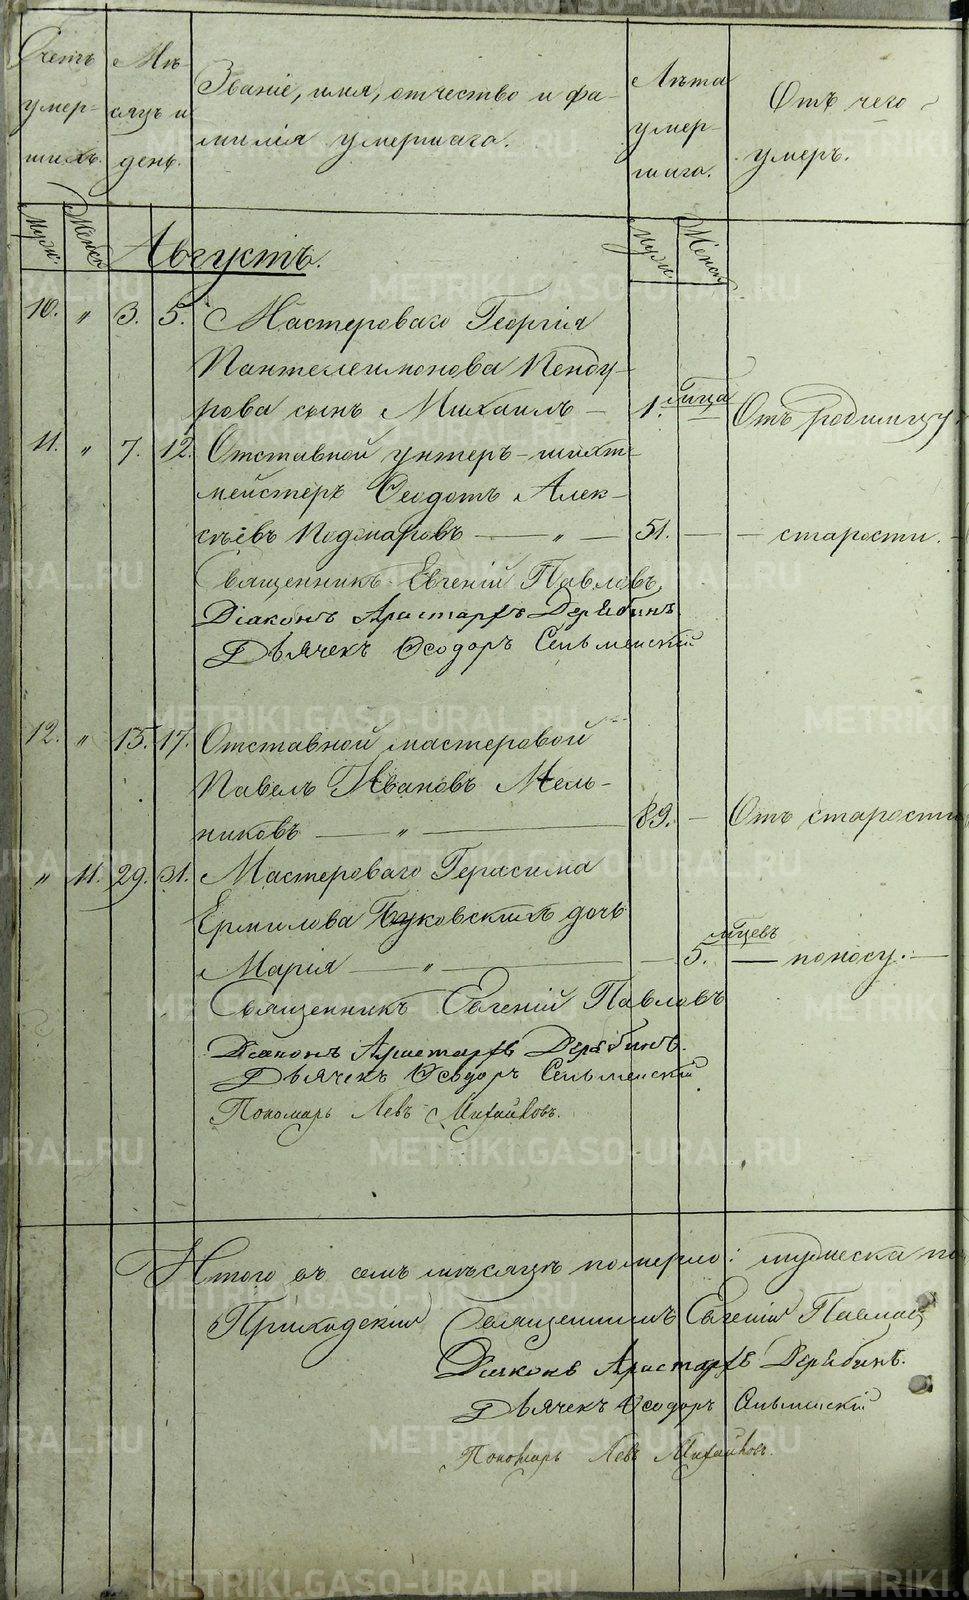 Счетъ умер- шихъ.
Мѣ- сяцъ и день.
Званіе, имя, отчество и фа-
милія умершаго.
Лѣта умер- шаго.
Отъ чего умеръ.
Муж. Женск.
Августъ.
Муж. Женск.
10. " 3. 5. Мастероваго Георгія
Пантелеимонова Пенду-
рова сынъ Михаилъ — 1. мѣсяца Отъ родимцу
11. " 7. 12. Отставной унтеръ-шихт-
мейстеръ Ѳеодотъ Алек-
сѣевъ Подомаровъ — " — 51. — — старости.
Священникъ Евгеній Павловъ
Діаконъ Аристархъ Дерябинъ
Дьячекъ Ѳеодоръ Сельменскій
12. " 15. 17. Отставной мастеровой
Павелъ Ивановъ Мель-
никовъ — " — 89. — Отъ старости
" 11. 29. 31. Мастероваго Герасима
Ермилова Буковскихъ дочь
Марія — " — 5. мѣсяцевъ — поносу.
Священникъ Евгеній Павловъ
Діаконъ Аристархъ Дерябинъ.
Дьячекъ Ѳеодоръ Сельменскій
Пономарь Левъ Михайловъ.
Итого въ семъ мѣсяцѣ померло: мужеска по
Приходскій Священникъ Евгеній Павловъ
Діаконъ Аристархъ Дерябинъ.
Дьячекъ Ѳеодоръ Сельменскій
Пономарь Левъ Михайловъ.
METRIKI.GASO-URAL.RU